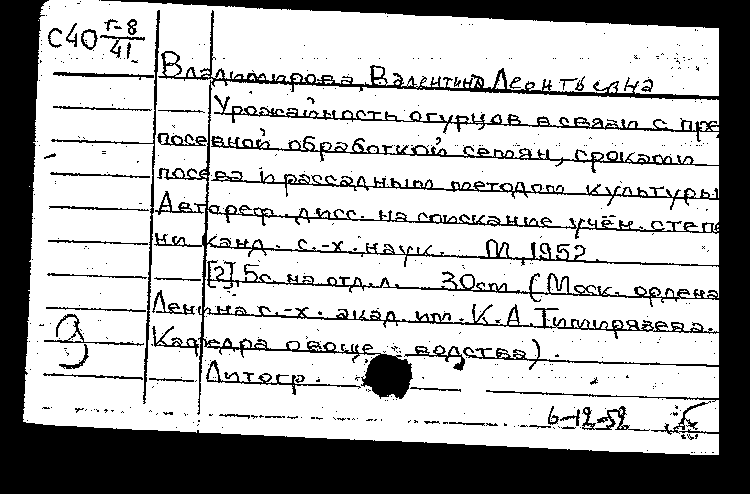 С40 Г-8/41
Владимирова, Валентина Леонтьевна
Урожайность огурцов в связи с пре
посевной обработкой семян, сроками
посева и рассадным методом культуры
Автореф. дисс. на соискание учён. степе
ни канд. с.-х. наук. М, 1952.
[2], 5с. на отд. л. 30см (Моск. ордена
Ленина с.-х. акад. им. К. А. Тимирязева.
Кафедра овощеводства).
д
Литогр.
6-12-52